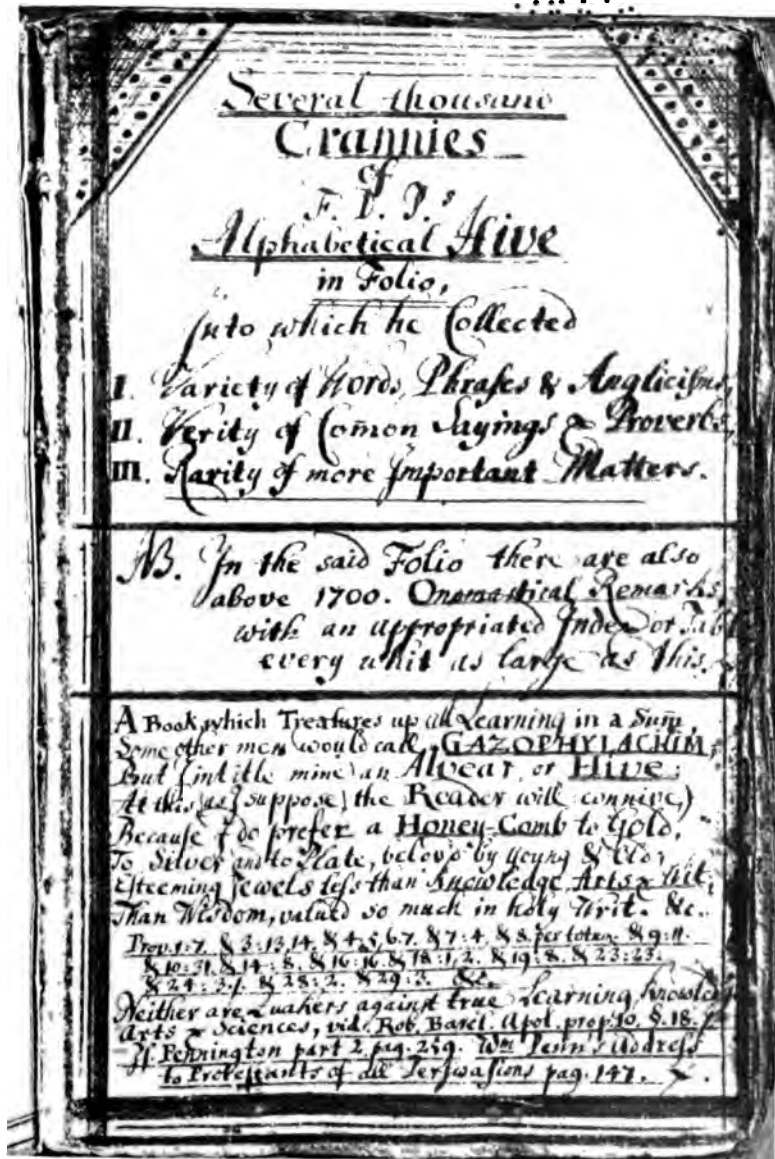 Several thousand
Crannies
of
F. D. P.s
Alphabetical Hive
in Folio,
Into which he Collected
I. Variety of Words, Phrases & Anglicisms,
II. Verity of Com̄on Sayings & Proverbs,
III. Rarity of more Important Matters.
NB. In the said Folio there are also
above 1700. Onomastical Remarks,
with an appropriated Index or
every whit as large as this.
A Book, which Treasures up all Learning in a Sum̄,
Some other men would call, GAZOPHYLACIUM;
But I intitle mine an Alvear, or HIVE:
At this (as I suppose) the Reader will connive,)
Because I do prefer a Honey-Comb to Gold,
To Silver and to Plate, belov'd by young & Old;
Esteeming Jewels less than Knowledge, Arts & Wit,
Than Wisdom, valued so much in holy Writ. &c.
Prov. 1:7. & 3:13,14. & 4:5,6,7. & 7:4. & 8. per totum. & 9:11.
& 10:31. & 14:8. & 16:16. & 18:1,2. & 19:8. & 23:23.
& 24:3,. & 28:2. & 29:3. &c.
Neither are Quakers against true Learning, Knowledg
Arts & Sciences, vid. Rob. Barcl. Apol. prop. 10. §. 18.
Is. Pennington part 2. pag. 259. Wm Penn's Address
to Protestants of all Perswasions pag. 147.